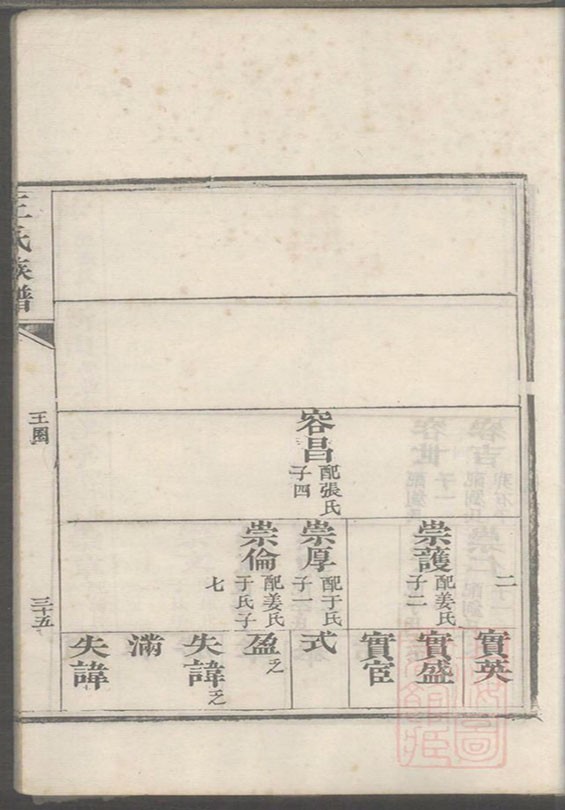 容昌
配張氏
子四
二
崇護
配姜氏
子二
崇厚
配于氏
子一
崇倫
配姜氏
于氏子
七
實英
實盛
實宦
式
盈
乏
失諱
乏
滿
失諱
王氏族譜
王圈
三十五